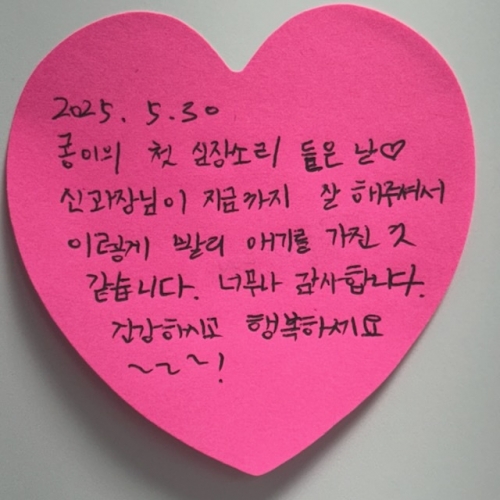 2025. 5.30
콩이의 첫 심장소리 들은 날♡
신과장님이 지금까지 잘 해주셔서
이렇게 빨리 애기를 가진 것
같습니다. 너무나 감사합니다.
건강하시고 행복하세요
~~~!